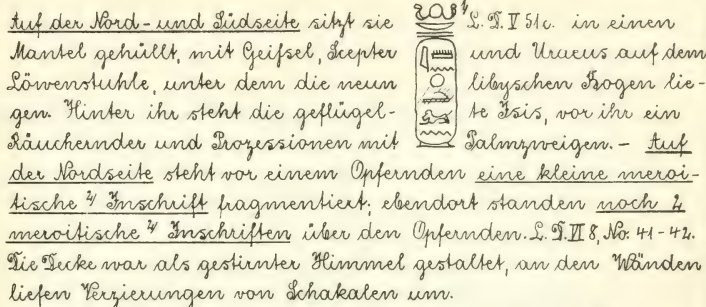 Auf der Nord- und Südseite sitzt sie L. D. V 51c. in einen
Mantel gehüllt, mit Geißel, Scepter und Uraeus auf dem
Löwenstuhle, unter dem die neun libyschen Bogen lie-
gen. Hinter ihr steht die geflügel- te Isis, vor ihr ein
Räuchernder und Prozessionen mit Palmzweigen. – Auf
der Nordseite steht vor einem Opfernden eine kleine meroi-
tische Inschrift fragmentiert; ebendort standen noch 2
meroitische Inschriften über den Opfernden. L. D. VI 8, No. 41-42.
Die Decke war als gestirnter Himmel gestaltet, an den Wänden
liefen Verzierungen von Schakalen um.